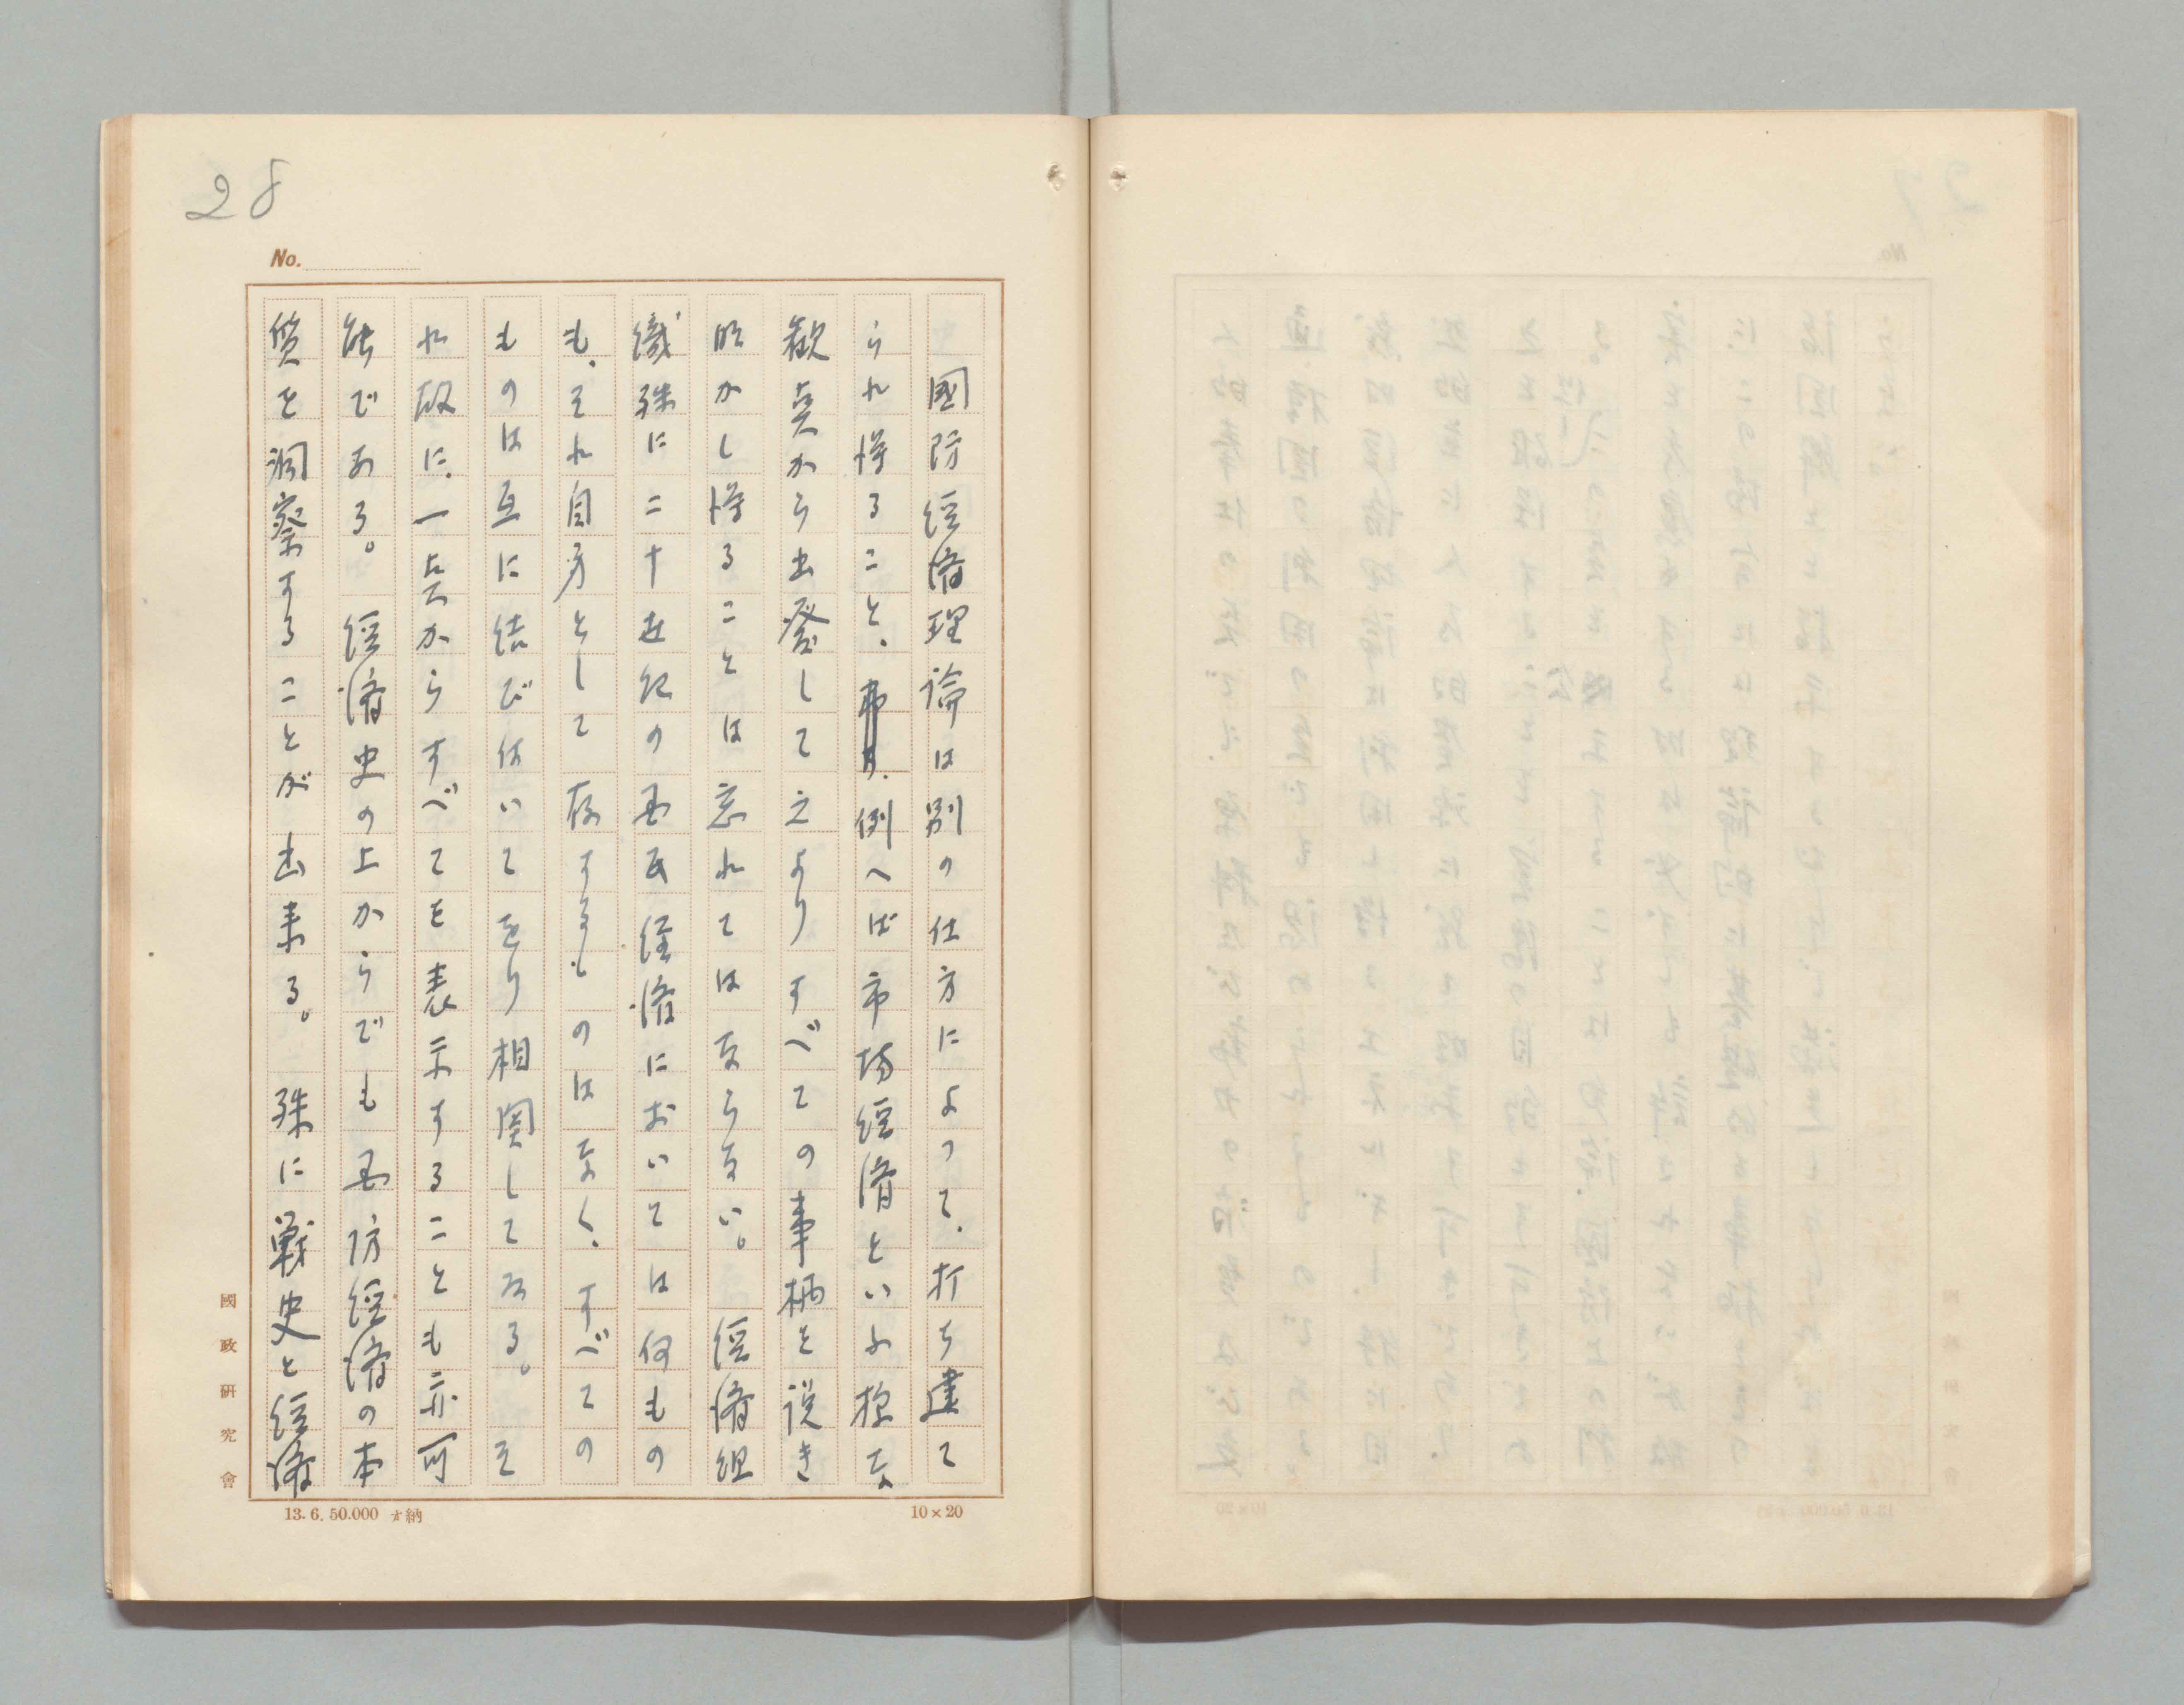 28
No.
國防経済理論は別の仕方によつて、打ち建て
られ得ること、例へば市場経済といふ様な
観点から出発して之よりすべての事柄を説き
明かし得ることは忘れてはならない。経済組
織殊に二十世紀の国民経済においては何もの
も、それ自身として存するものはなく、すべての
ものは互に結びついてをり相関してゐる。そ
れ故に、一点からすべてを表示することも亦可
能である。経済史の上からでも国防経済の本
質を洞察することが出来る。殊に戦史と経済
國政研究會
13.6.50.000 納
10×20